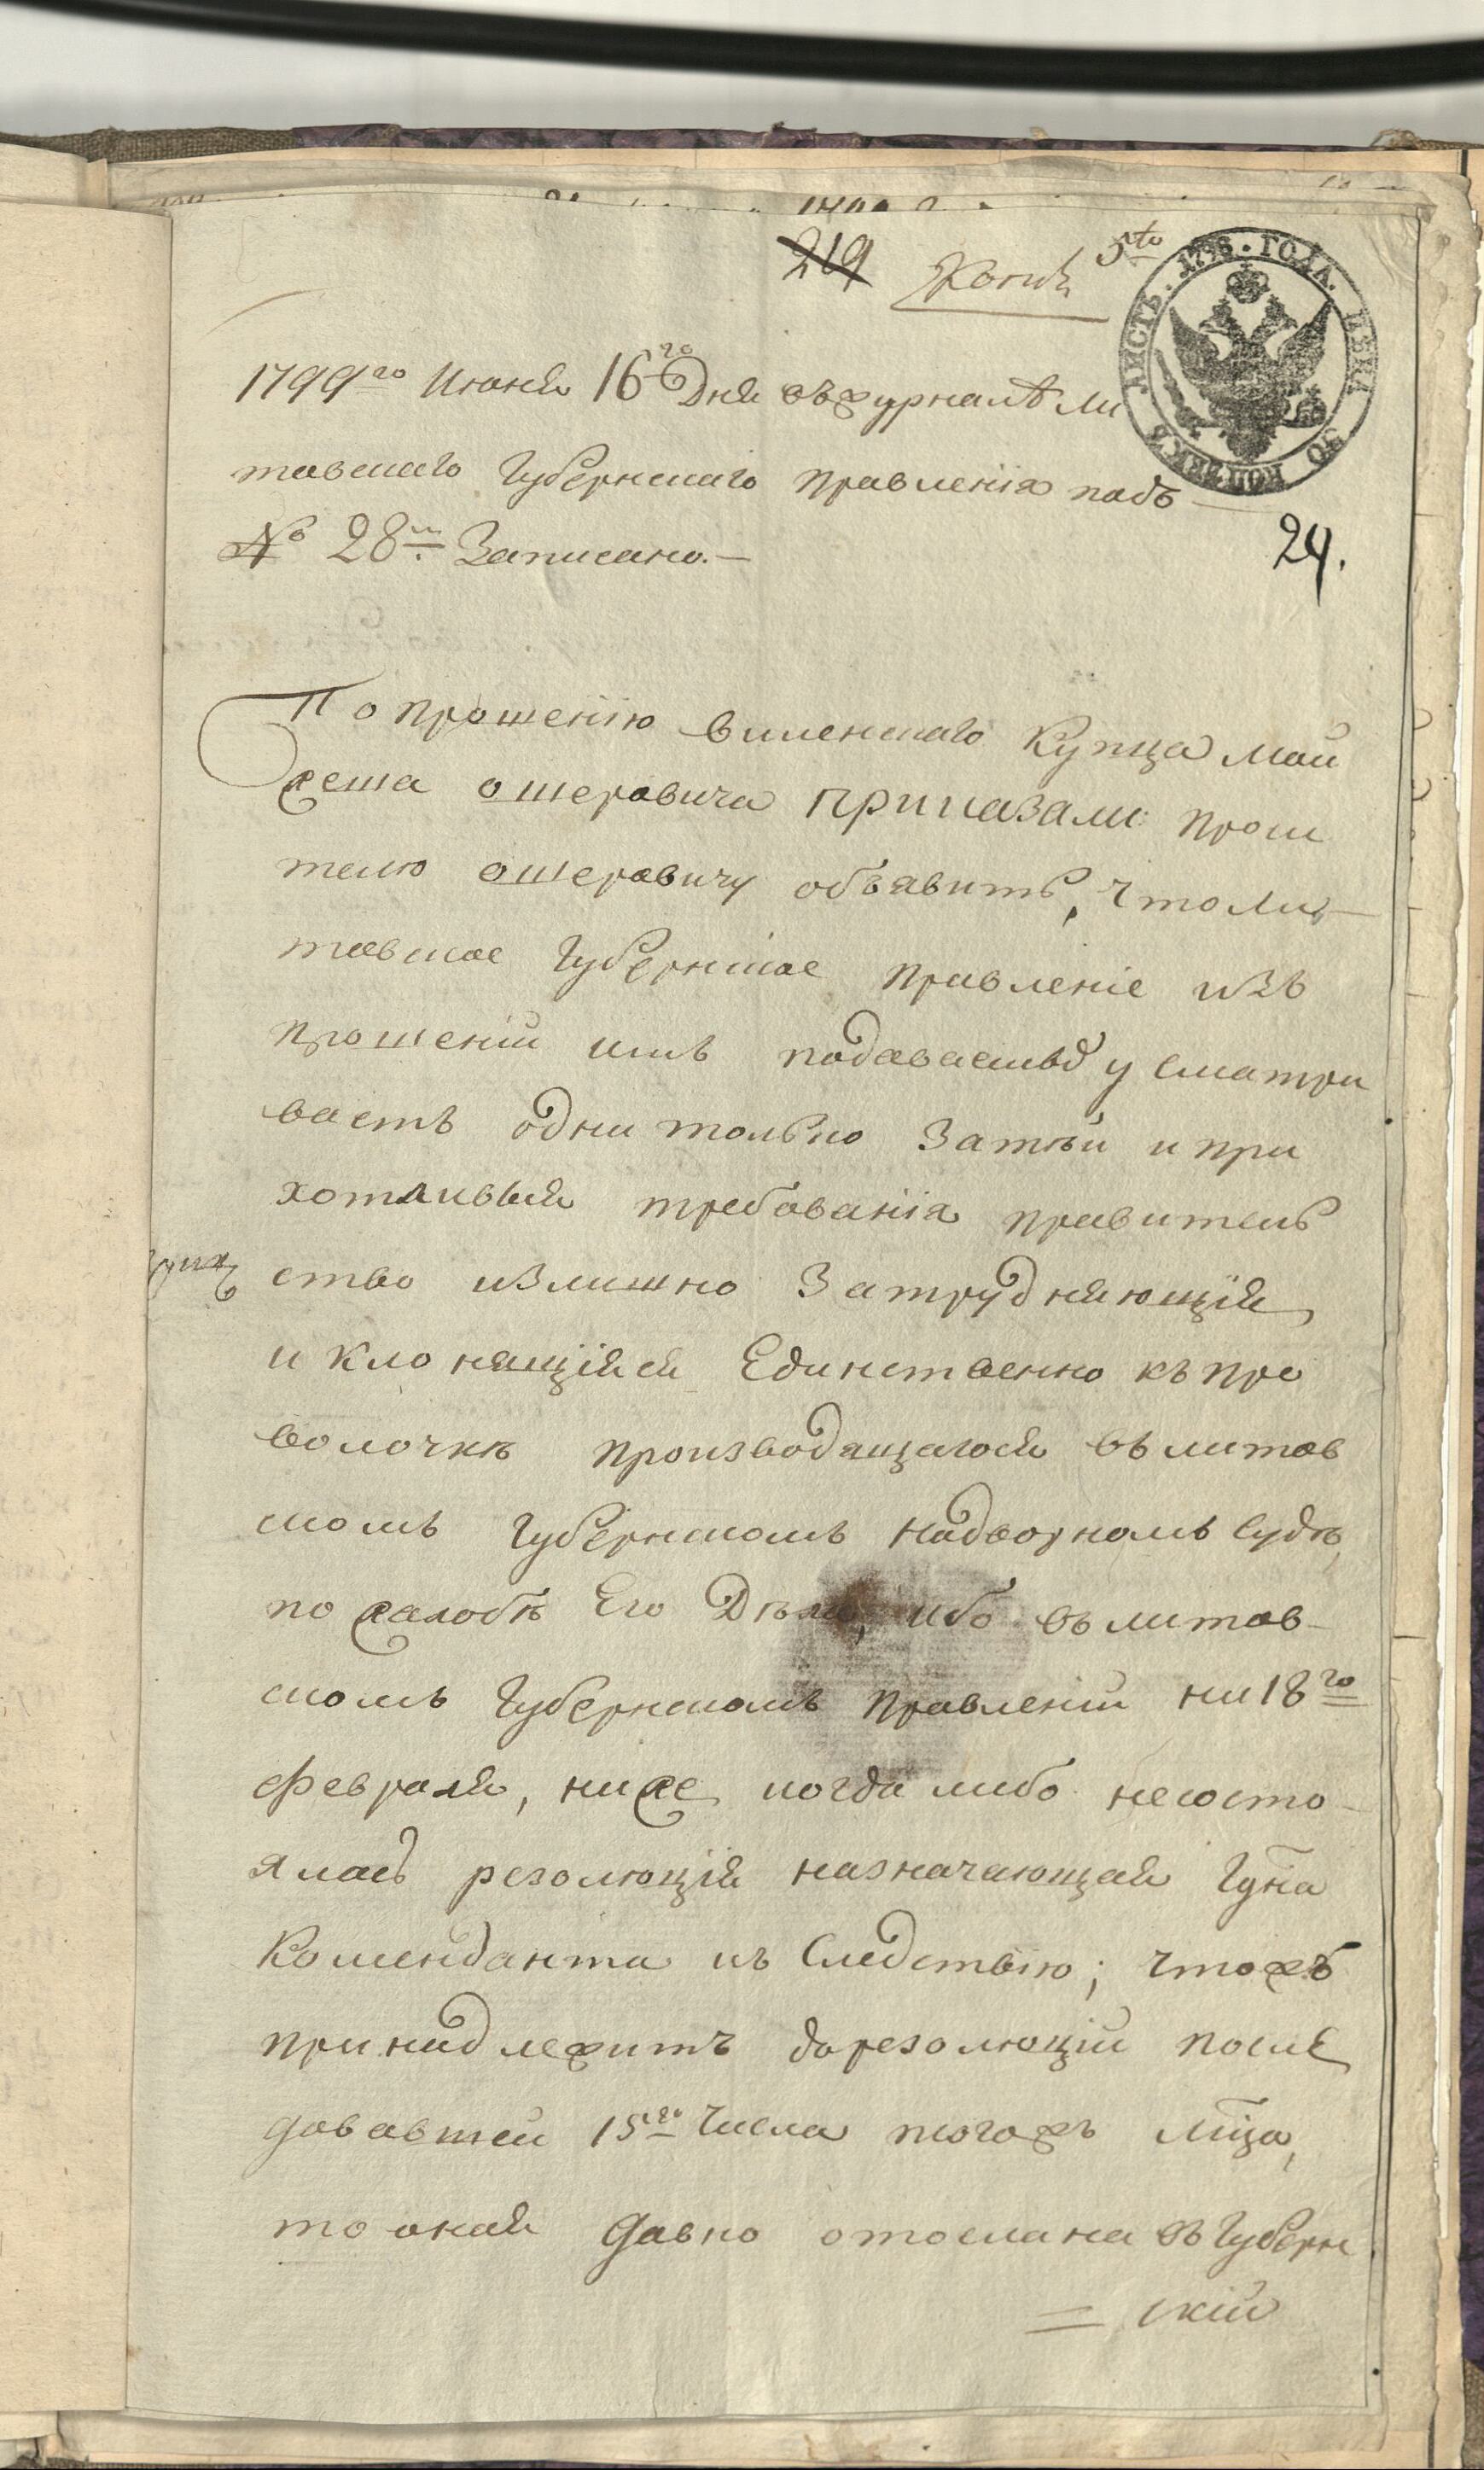 219 Копiя 5to
ЛИСТЪ. 1798. ГОДА. ЦЕНА 30 КОПѢЕКЪ
1799го Июня 16го Дня въ журналѣ Ли
товскаго Губернскаго правленія подъ
№ 28м Записано.—
24.
По прошенію виленскаго Купца Мов
жеша ошеровича приказали: проси
телю ошеровичу объявить, что Ли
товское Губернское правленіе изъ
прошеній имъ подаваемыхъ усматри
ваетъ одни только Затѣи и при
хотливыя требованія правитель
ство излишно Затрудняющія
и клонящіяся Единственно къ про
волочкѣ производящагося въ литов
скомъ Губернскомъ надворномъ Судѣ,
по жалобѣ Его Дѣла, ибо въ литов
скомъ Губернскомъ правленіи ни 18го
февраля, ниже когда либо несосто
ялась резолюція назначающая Гдна
Коменданта къ Следствію; чтожъ
принадлежитъ дорезолюціи послѣ
довавшей 15го Числа тогожъ мца,
то оная давно отослана въ Губерн
= скій